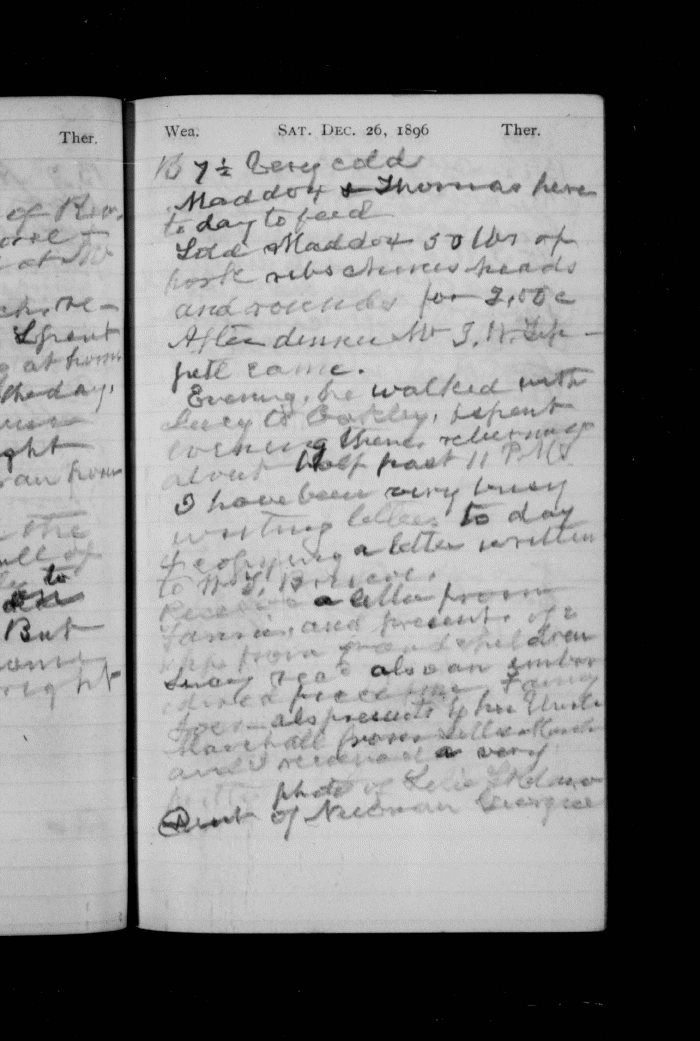 Ther.
of Riv.
at Mr
ch. re-
Spent
at home
the day,
ght
ran from
the
full of
to
But
right
Wea. SAT. DEC. 26, 1896 Ther.
B 7½ Very cold
Maddox & Thomas here
to day to feed
Sold Maddox 50 lbs of
pork ribs chines heads
and rounds for 2,00c
After dinner Mr T. W. Tip-
pett came.
Evening, he walked with
Lucy to Oakley, spent
evening there, returning
about half past 11 P.M.
I have been very busy
writing letters to day
& copying a letter written
to
Received a letter from
Fannie, and presents of 2
from grandchildren
Lucy rec'd also an embroi
dered piece from Fanny
also presents by her Uncle
Marshall from
and I received a very
photo of
Aunt of Newnan Georgia